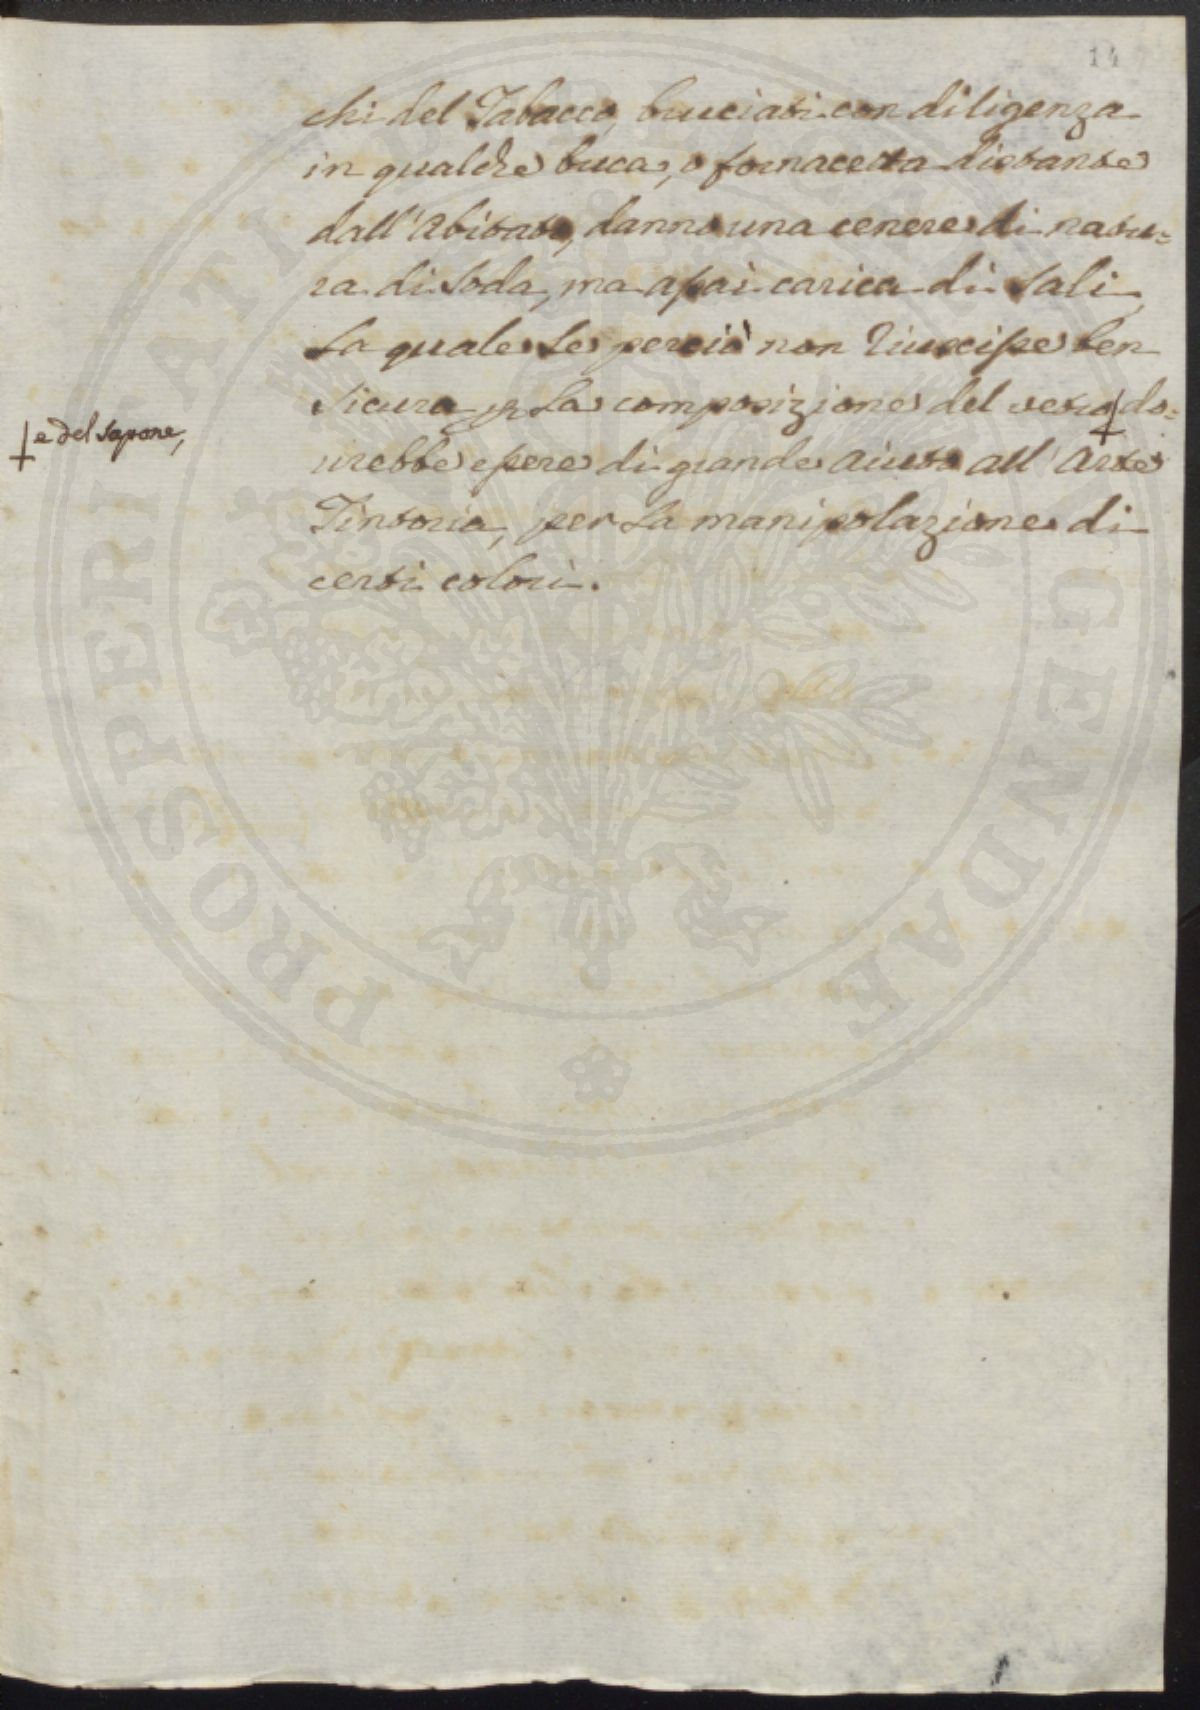 14
chi del Tabacco, bruciati con diligenza
in qualche buca, o fornacetta distante
dall'Abitato, danno una cenere di natu=
ra di Soda, ma assai carica di Sali
La quale se perciò non riuscisse ben
sicura p la composizione del vetro † do=
† e del sapone,
vrebbe essere di grande aiuto all'Arte
Tintoria, per la manipolazione di
certi colori.
PROSPERITATI AUGENDAE